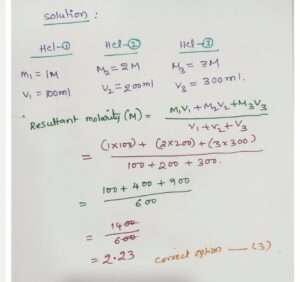 Solution :
HCl-① HCl-② HCl-③
M₁ = 1M M₂ = 2M M₃ = 3M
V₁ = 100ml V₂ = 200ml V₃ = 300ml.
Resultant molarity (M) = M₁V₁ + M₂V₂ + M₃V₃ / V₁ + V₂ + V₃
= (1x100) + (2x200) + (3x300) / 100 + 200 + 300.
= 100 + 400 + 900 / 600
= 1400 / 600
= 2.23 correct option — (3)